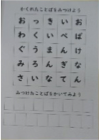 かくれたことばをみつけよう
おっきいお
わくいぺば
ぐうまんけ
みろんぎな
さいなてん
みつけたことばをかいてみよう